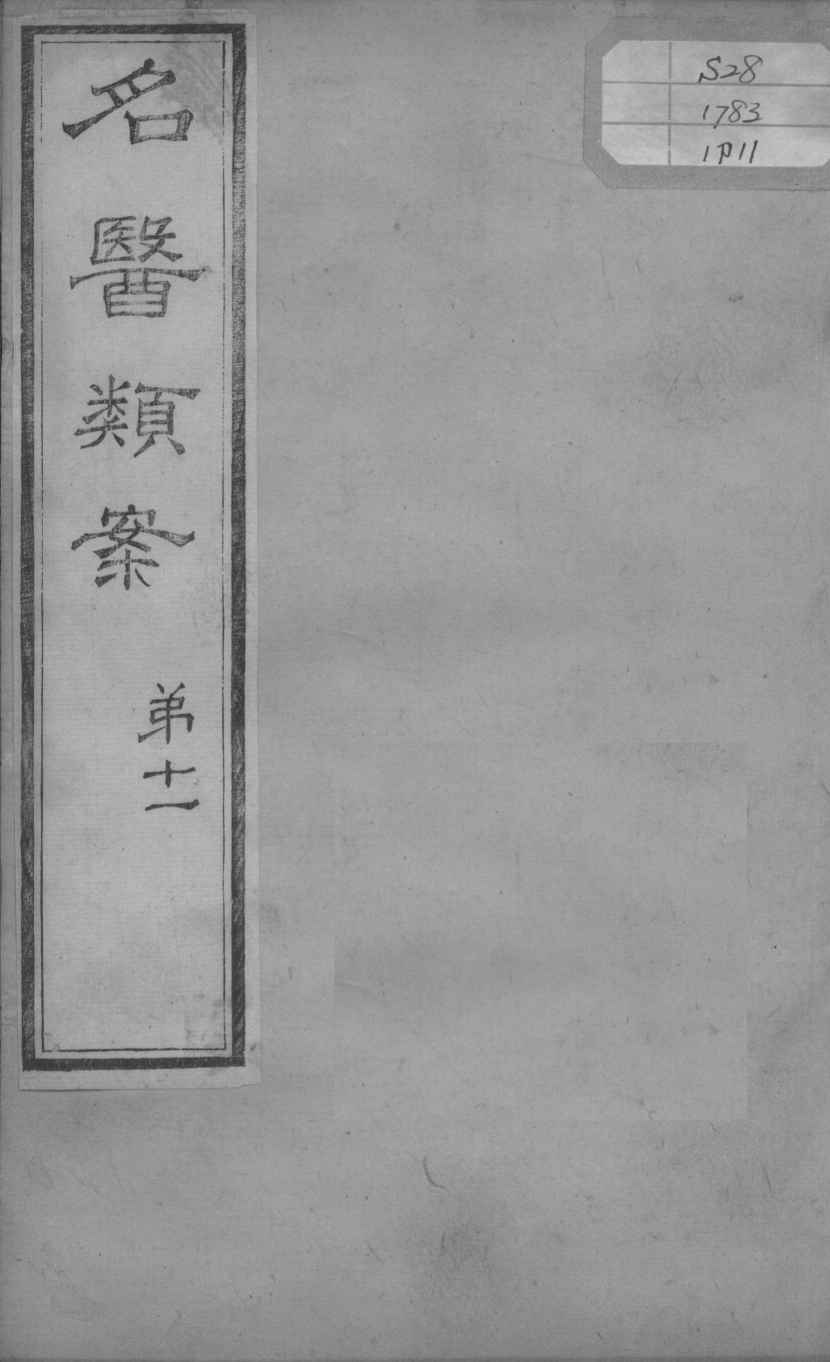 名醫類案
弟十一
S28
1783
1P11